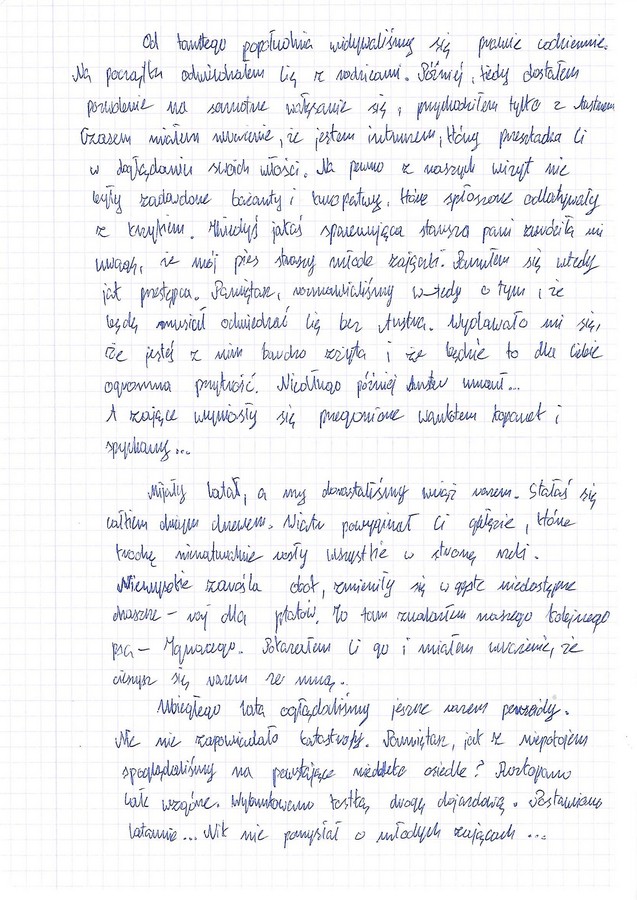 Od tamtego popołudnia widywaliśmy się prawie codziennie.
Na początku odwiedzałem Cię z rodzicami. Później, kiedy dostałem
pozwolenie na samotne wałęsanie się, przychodziłem tylko z Austrem
Czasem miałem wrażenie, że jestem intruzem, który przeszkadza Ci
w doglądaniu swoich włości. Na pewno z naszych wizyt nie
były zadowolone bażanty i kuropatwy, które spłoszone odlatywały
z krzykiem. Kiedyś jakaś spacerująca starsza pani zwróciła mi
uwagę, że mój pies straszy młode zajączki. Poczułem się wtedy
jak przestępca. Pamiętasz, rozmawialiśmy wtedy o tym, że
będę musiał odwiedzać Cię bez Austra. Wydawało mi się,
że jesteś z nim bardzo zżyta i że będzie to dla Ciebie
ogromna przykrość. Niedługo później Auster umarł...
A zające wyniosły się przegonione warkotem koparek i
spycharek...
Mijały lata, a my dorastaliśmy wciąż razem. Stałaś się
całkiem dużym drzewem. Wiatr powyginał Ci gałęzie, które
trochę nienaturalnie rosły wszystkie w stronę rzeki.
Niewysokie zarośla obok, zmieniły się w gęste niedostępne
chaszcze - raj dla ptaków. To tam znalazłem naszego kolejnego
psa - Ignacego. Pokazałem Ci go i miałem wrażenie, że
cieszysz się razem ze mną.
Ubiegłego lata oglądaliśmy jeszcze razem perseidy.
Nic nie zapowiadało katastrofy. Pamiętasz, jak z niepokojem
spoglądaliśmy na powstające niedaleko osiedle? Rozkopano
całe wzgórze. Wybrukowano kostką drogę dojazdową. Postawiono
latarnie... Nikt nie pomyślał o młodych zającach...